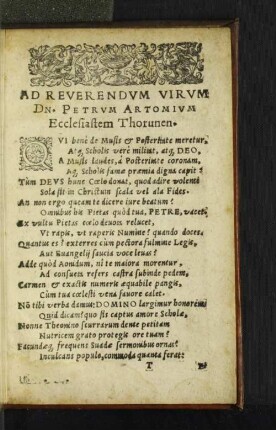 AD REVERENDVM VIRVM
DN. PETRVM ARTOMIVM
Ecclesiastem Thorunen.
QVI benè de Musis & Posteritate meretur,
Atq; Scholis verè miliut, atq; DEO,
A Musis laudes, à Posteritate coronam,
Aq; Scholis famæ præmia digna capit?
Tùm DEVS hunc Cœlo donat, quod adire volenti
Sola sit in Christum scala vel ala Fides.
An non ergo queam te dicere iure beatum?
Omnibus his Pietas quòd tua, PETRE, vacet?
Ex vultu Pietas cœlo deuota relucet,
Vt rapis, vt raperis Numine? quando doces,
Quantus es? exterres cùm pectora fulmine Legis,
Aut Euangelij saucia voce leuas?
Adde quòd Aonidum, ni te maiora morentur,
Ad consueta refers castra subinde pedem,
Carmen & exactis numeris æquabile pangis,
Cùm tua cœlesti vena fauore calet.
Nō tibi verba damus: DOMINO largimur honorem:
Quid dicam? quo sis captus amore Scholæ,
Nonne Theonino scurrarum dente petitam
Nutricem grato protegis ore tuam?
Facundæq; frequens Suadæ sermonibus ornas?
Inculcans populo, commoda quanta ferat?
T